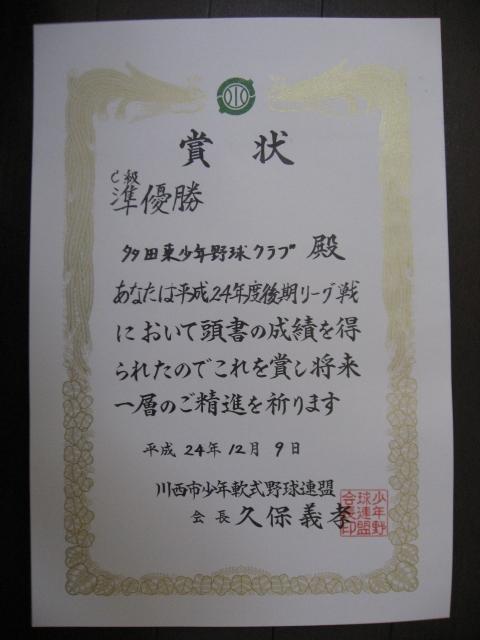 賞状
C級
準優勝
多田東少年野球クラブ 殿
あなたは平成24年度後期リーグ戦
において頭書の成績を得
られたのでこれを賞し将来
一層のご精進を祈ります
平成24年12月9日
川西市少年軟式野球連盟
会長 久保義孝
少年野
球連盟
会長印